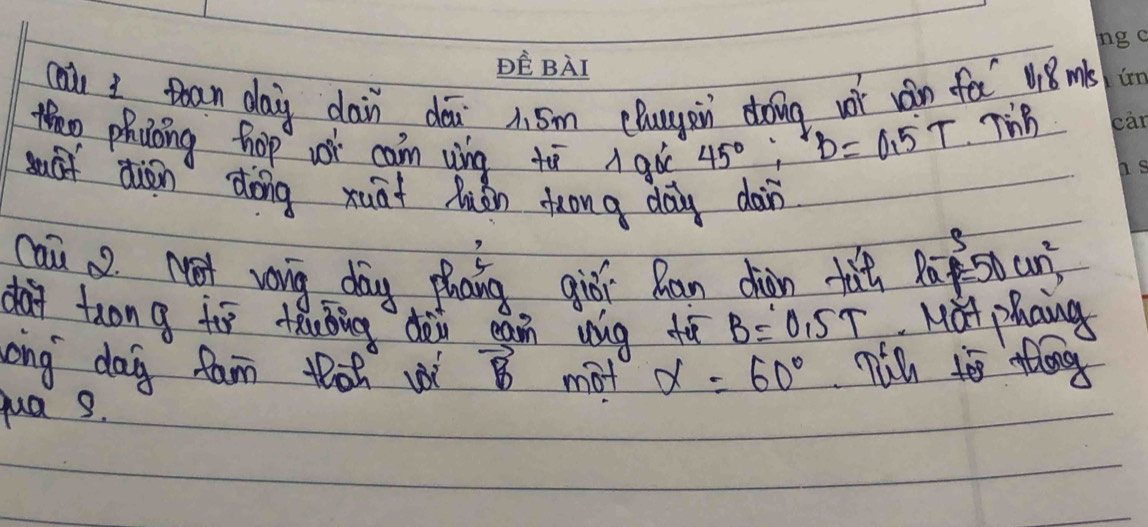 ĐỀ BÀI
Câu 1 Đoạn dây dẫn dài 1,5m chuyển động với vận tốc 0,8 m/s
theo phương hợp với cảm ứng từ 1 góc 45° ; B = 0,5 T. Tính
suất điện động xuất hiện trong dây dẫn.
Câu 2. Một vòng dây phẳng giới hạn diện tích là S=50 cm²,
đặt trong từ trường đều cảm ứng từ B = 0,5T. Mặt phẳng
vòng dây làm thành với B⃗ một α = 60°. Tính từ thông
qua S.
ng c